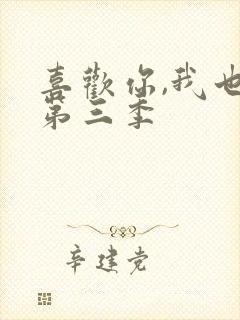 喜歡你,我也
第三季
辛建党